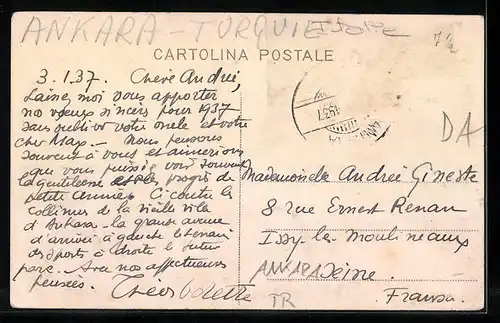 ANKARA - TURQUIE
CARTOLINA POSTALE
7½
3.1.37. Chère Andrée,
Laissez moi vous apporter
nos voeux sincères pour 1937
sans oublier votre oncle et votre
cher Max. - Nous pensons
souvent à vous et aimerions
que vous puissiez voir souvent
la gentillesse et les progrès de
petite Annie. Ci contre les
collines de la vieille ville
d'Ankara la grande avenue
d'arrivée à gauche le terrain
des sports à droite le futur
parc. Avec nos affectueuses
pensées.
1937
DA
Mademoiselle Andrée Gineste
8 rue Ernest Renan
Issy-les-Moulineaux
ANKARA Seine.
TR
Fransa.